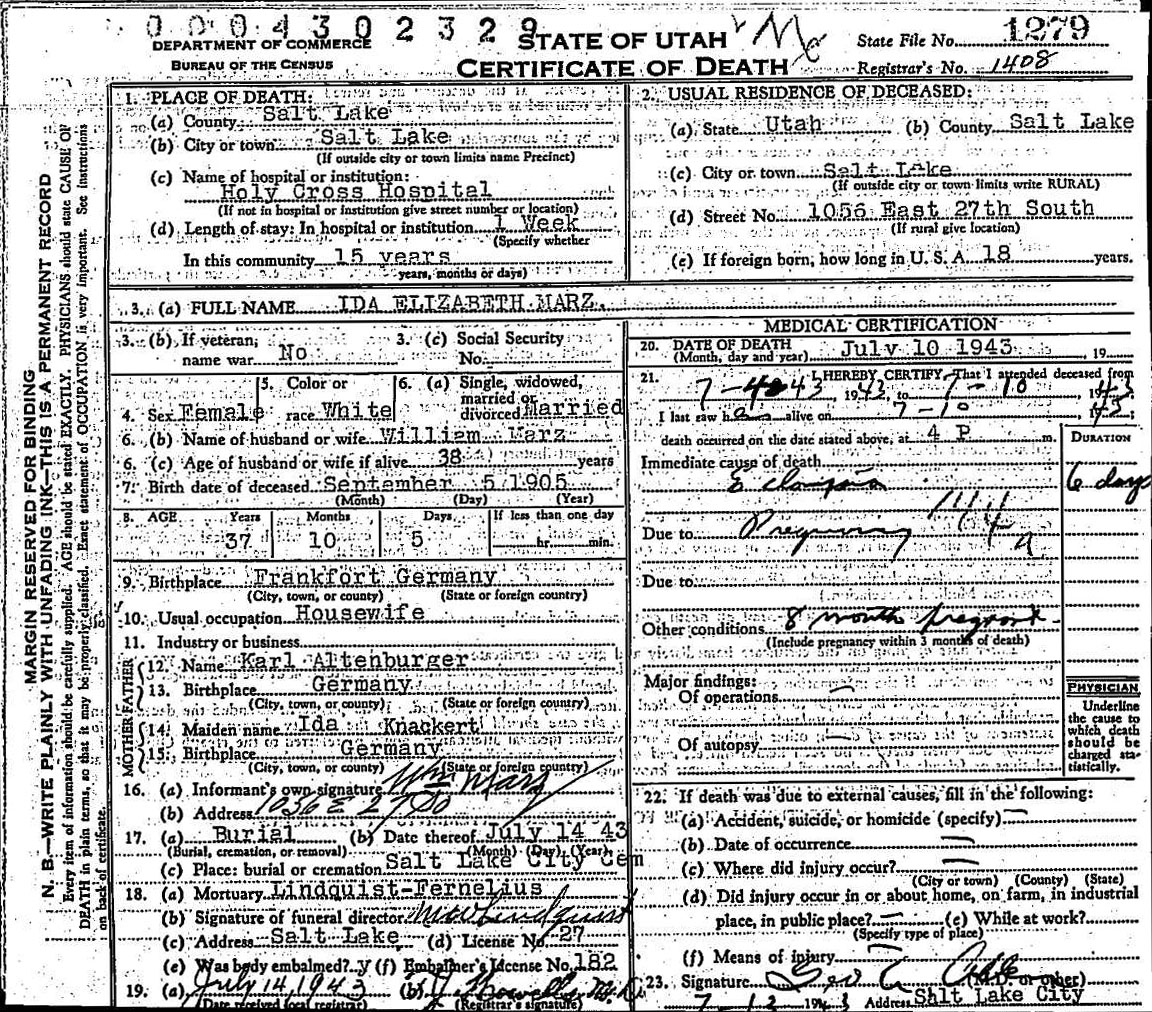 0004302329
DEPARTMENT OF COMMERCE
BUREAU OF THE CENSUS
STATE OF UTAH
CERTIFICATE OF DEATH
State File No. 1279
Registrar's No. 1408
MARGIN RESERVED FOR BINDING
N. B.—WRITE PLAINLY WITH UNFADING INK—THIS IS A PERMANENT RECORD
Every item of information should be carefully supplied. AGE should be stated EXACTLY. PHYSICIANS should state CAUSE OF
DEATH in plain terms, so that it may be properly classified. Exact statement of OCCUPATION is very important. See instructions
on back of certificate.
1. PLACE OF DEATH:
(a) County Salt Lake
(b) City or town Salt Lake
(If outside city or town limits name Precinct)
(c) Name of hospital or institution:
Holy Cross Hospital
(If not in hospital or institution give street number or location)
(d) Length of stay: In hospital or institution 1 Week
(Specify whether
In this community 15 years
years, months or days)
2. USUAL RESIDENCE OF DECEASED:
(a) State Utah (b) County Salt Lake
(c) City or town Salt Lake
(If outside city or town limits write RURAL)
(d) Street No. 1056 East 27th South
(If rural give location)
(e) If foreign born, how long in U. S. A. 18 years.
3. (a) FULL NAME IDA ELIZABETH MARZ.
3. (b) If veteran, name war No
3. (c) Social Security No.
4. Sex Female
5. Color or race White
6. (a) Single, widowed, married or divorced Married
6. (b) Name of husband or wife William Marz
6. (c) Age of husband or wife if alive 38 years
7. Birth date of deceased September 5 1905
(Month) (Day) (Year)
8. AGE Years Months Days If less than one day
37 10 5 hr. min.
9. Birthplace Frankfort Germany
(City, town, or county) (State or foreign country)
10. Usual occupation Housewife
11. Industry or business
FATHER
12. Name Karl Altenburger
13. Birthplace Germany
(City, town, or county) (State or foreign country)
MOTHER
14. Maiden name Ida Knackert
15. Birthplace Germany
(City, town, or county) (State or foreign country)
16. (a) Informant's own signature Wm Marz
(b) Address 1056 E 27 So
17. (a) Burial (b) Date thereof July 14 43
(Burial, cremation, or removal) (Month) (Day) (Year)
(c) Place: burial or cremation Salt Lake City Cem
18. (a) Mortuary Lindquist-Fernelius
(b) Signature of funeral director
(c) Address Salt Lake (d) License No. 27
(e) Was body embalmed? y (f) Embalmer's License No. 182
19. (a) July 14, 1943 (b)
(Date received local registrar) (Registrar's signature)
MEDICAL CERTIFICATION
20. DATE OF DEATH
(Month, day and year) July 10 1943, 19
21. I HEREBY CERTIFY, That I attended deceased from
1943, to 7-10, 1943
I last saw her alive on 7-10, 1943;
death occurred on the date stated above, at 4 P m.
DURATION
Immediate cause of death
Eclampsia 6 days
Due to Pregnancy
Due to
Other conditions 8 month pregnant
(Include pregnancy within 3 months of death)
Major findings:
Of operations —
Of autopsy —
PHYSICIAN
Underline
the cause to
which death
should be
charged sta-
tistically.
22. If death was due to external causes, fill in the following:
(a) Accident, suicide, or homicide (specify) —
(b) Date of occurrence —
(c) Where did injury occur? —
(City or town) (County) (State)
(d) Did injury occur in or about home, on farm, in industrial
place, in public place? — (e) While at work?
(Specify type of place)
(f) Means of injury —
23. Signature Geo (M.D. or other)
7 12 1943 Address Salt Lake City